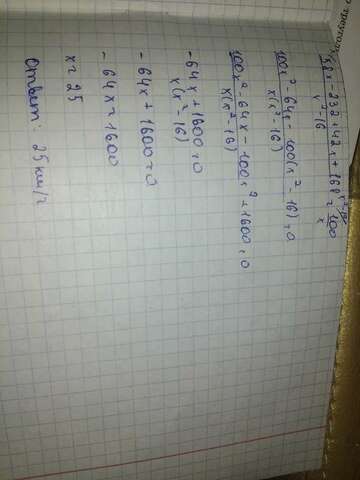 58x - 232 + 42x + 168 / x² - 16 = 100 / x
100x² - 64x - 100(x² - 16) / x(x² - 16) = 0
100x² - 64x - 100x² + 1600 / x(x² - 16) = 0
-64x + 1600 / x(x² - 16) = 0
-64x + 1600 = 0
-64x = 1600
x = 25
Ответ: 25 км/ч